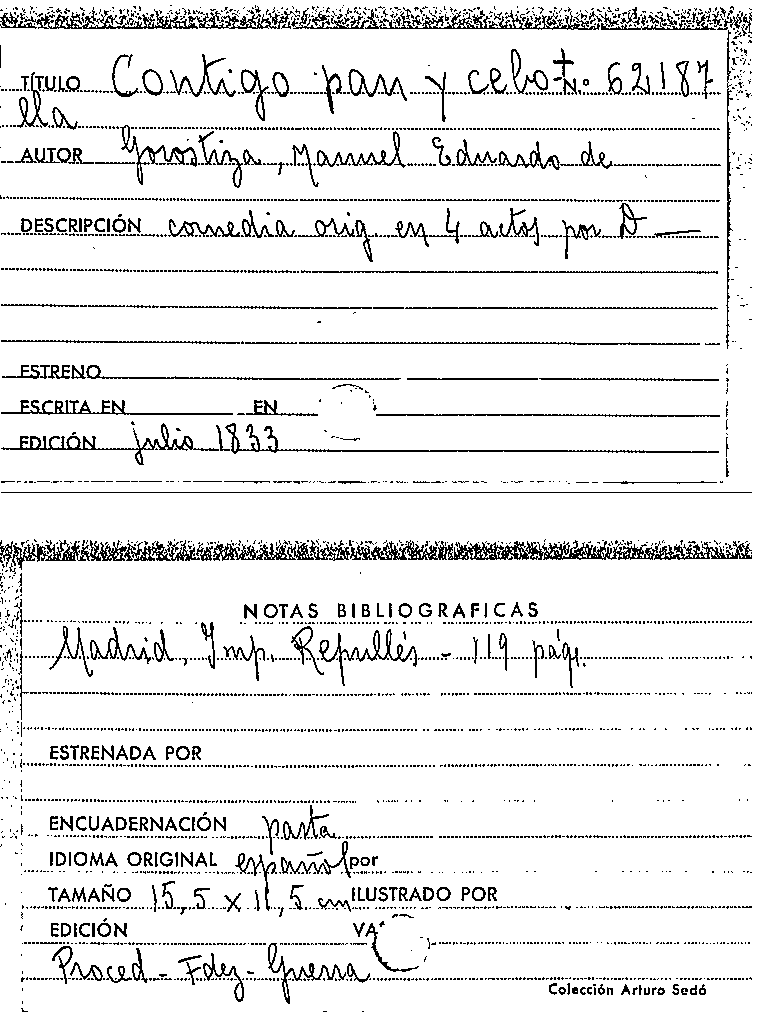 TÍTULO Contigo pan y cebo N.º 62187
lla
AUTOR Gorostiza, Manuel Eduardo de
DESCRIPCIÓN comedia orig. en 4 actos por D —
ESTRENO
ESCRITA EN EN
EDICIÓN julio 1833
NOTAS BIBLIOGRAFICAS
Madrid, Imp. Repullés - 119 pág.
ESTRENADA POR
ENCUADERNACIÓN pasta
IDIOMA ORIGINAL español por
TAMAÑO 15,5 x 11,5 cm ILUSTRADO POR
EDICIÓN VA
Proced - Fdez - Guerra
Colección Arturo Sedó